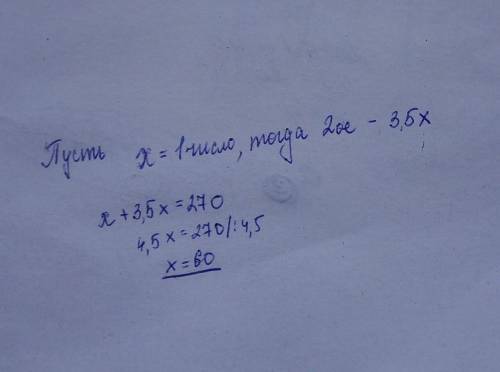 Пусть x = 1 число, тогда 2ое - 3,5x
x + 3,5x = 270
4,5x = 270 /: 4,5
x = 60